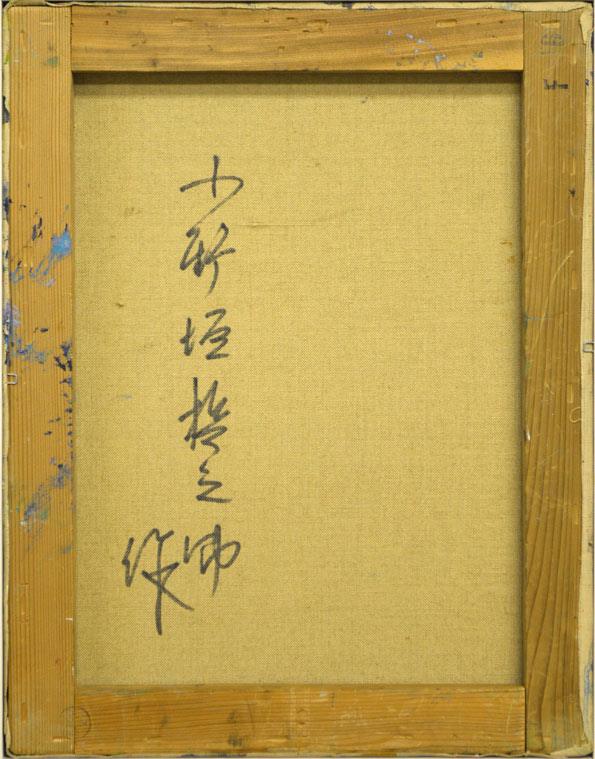 小野垣哲之助
作
F